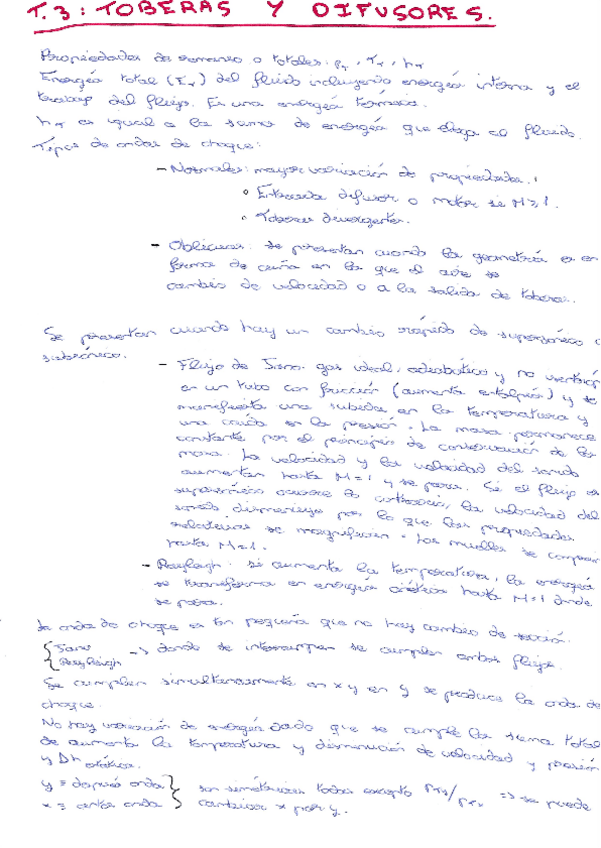 T.3: TOBERAS Y DIFUSORES.
Propiedades de remanso o totales: p_T, T_T, h_T
Energía total (E_T) del fluido incluyendo energía interna y el
trabajo del flujo. Es una energía térmica.
h_T es igual a la suma de energía que llega al fluido.
Tipos de ondas de choque:
- Normales: mayor variación de propiedades.
◦ Entrada difusor o motor si M≥1.
◦ Toberas divergentes.
- Oblicuas: se presentan cuando la geometría es en
forma de cuña en la que el aire se
cambia de velocidad o a la salida de tobera.
Se presentan cuando hay un cambio rápido de supersónico a
subsónico.
- Flujo de Fanno: gas ideal, adiabático y no
en un tubo con fricción (aumenta entalpía) y se
manifiesta una subida en la temperatura y
una caída en la presión. La masa permanece
constante por el principio de conservación de la
masa. La velocidad y la velocidad del sonido
aumentan hasta M=1 y se para. Si el flujo es
supersónico ocurre lo contrario, la velocidad del
sonido disminuye por lo que las propiedades
se magnifican.
hasta M=1.
- Rayleigh: si aumenta la temperatura, la energía
se transforma en energía cinética hasta M=1 donde
se para.
La onda de choque es tan pequeña que no hay cambio de sección.
{ Fano
{ Rayleigh -> donde se interrumpen se cumplen ambos flujos.
Se cumplen simultáneamente en x y en y se produce la onda de
choque.
No hay variación de energía dado que se cumple la suma total
de aumento la temperatura y disminución de velocidad y presión
y Δh estática.
y = después onda } son simétricas todas excepto p_Ty/p_Tx => se puede
x = antes onda } cambiar x por y.